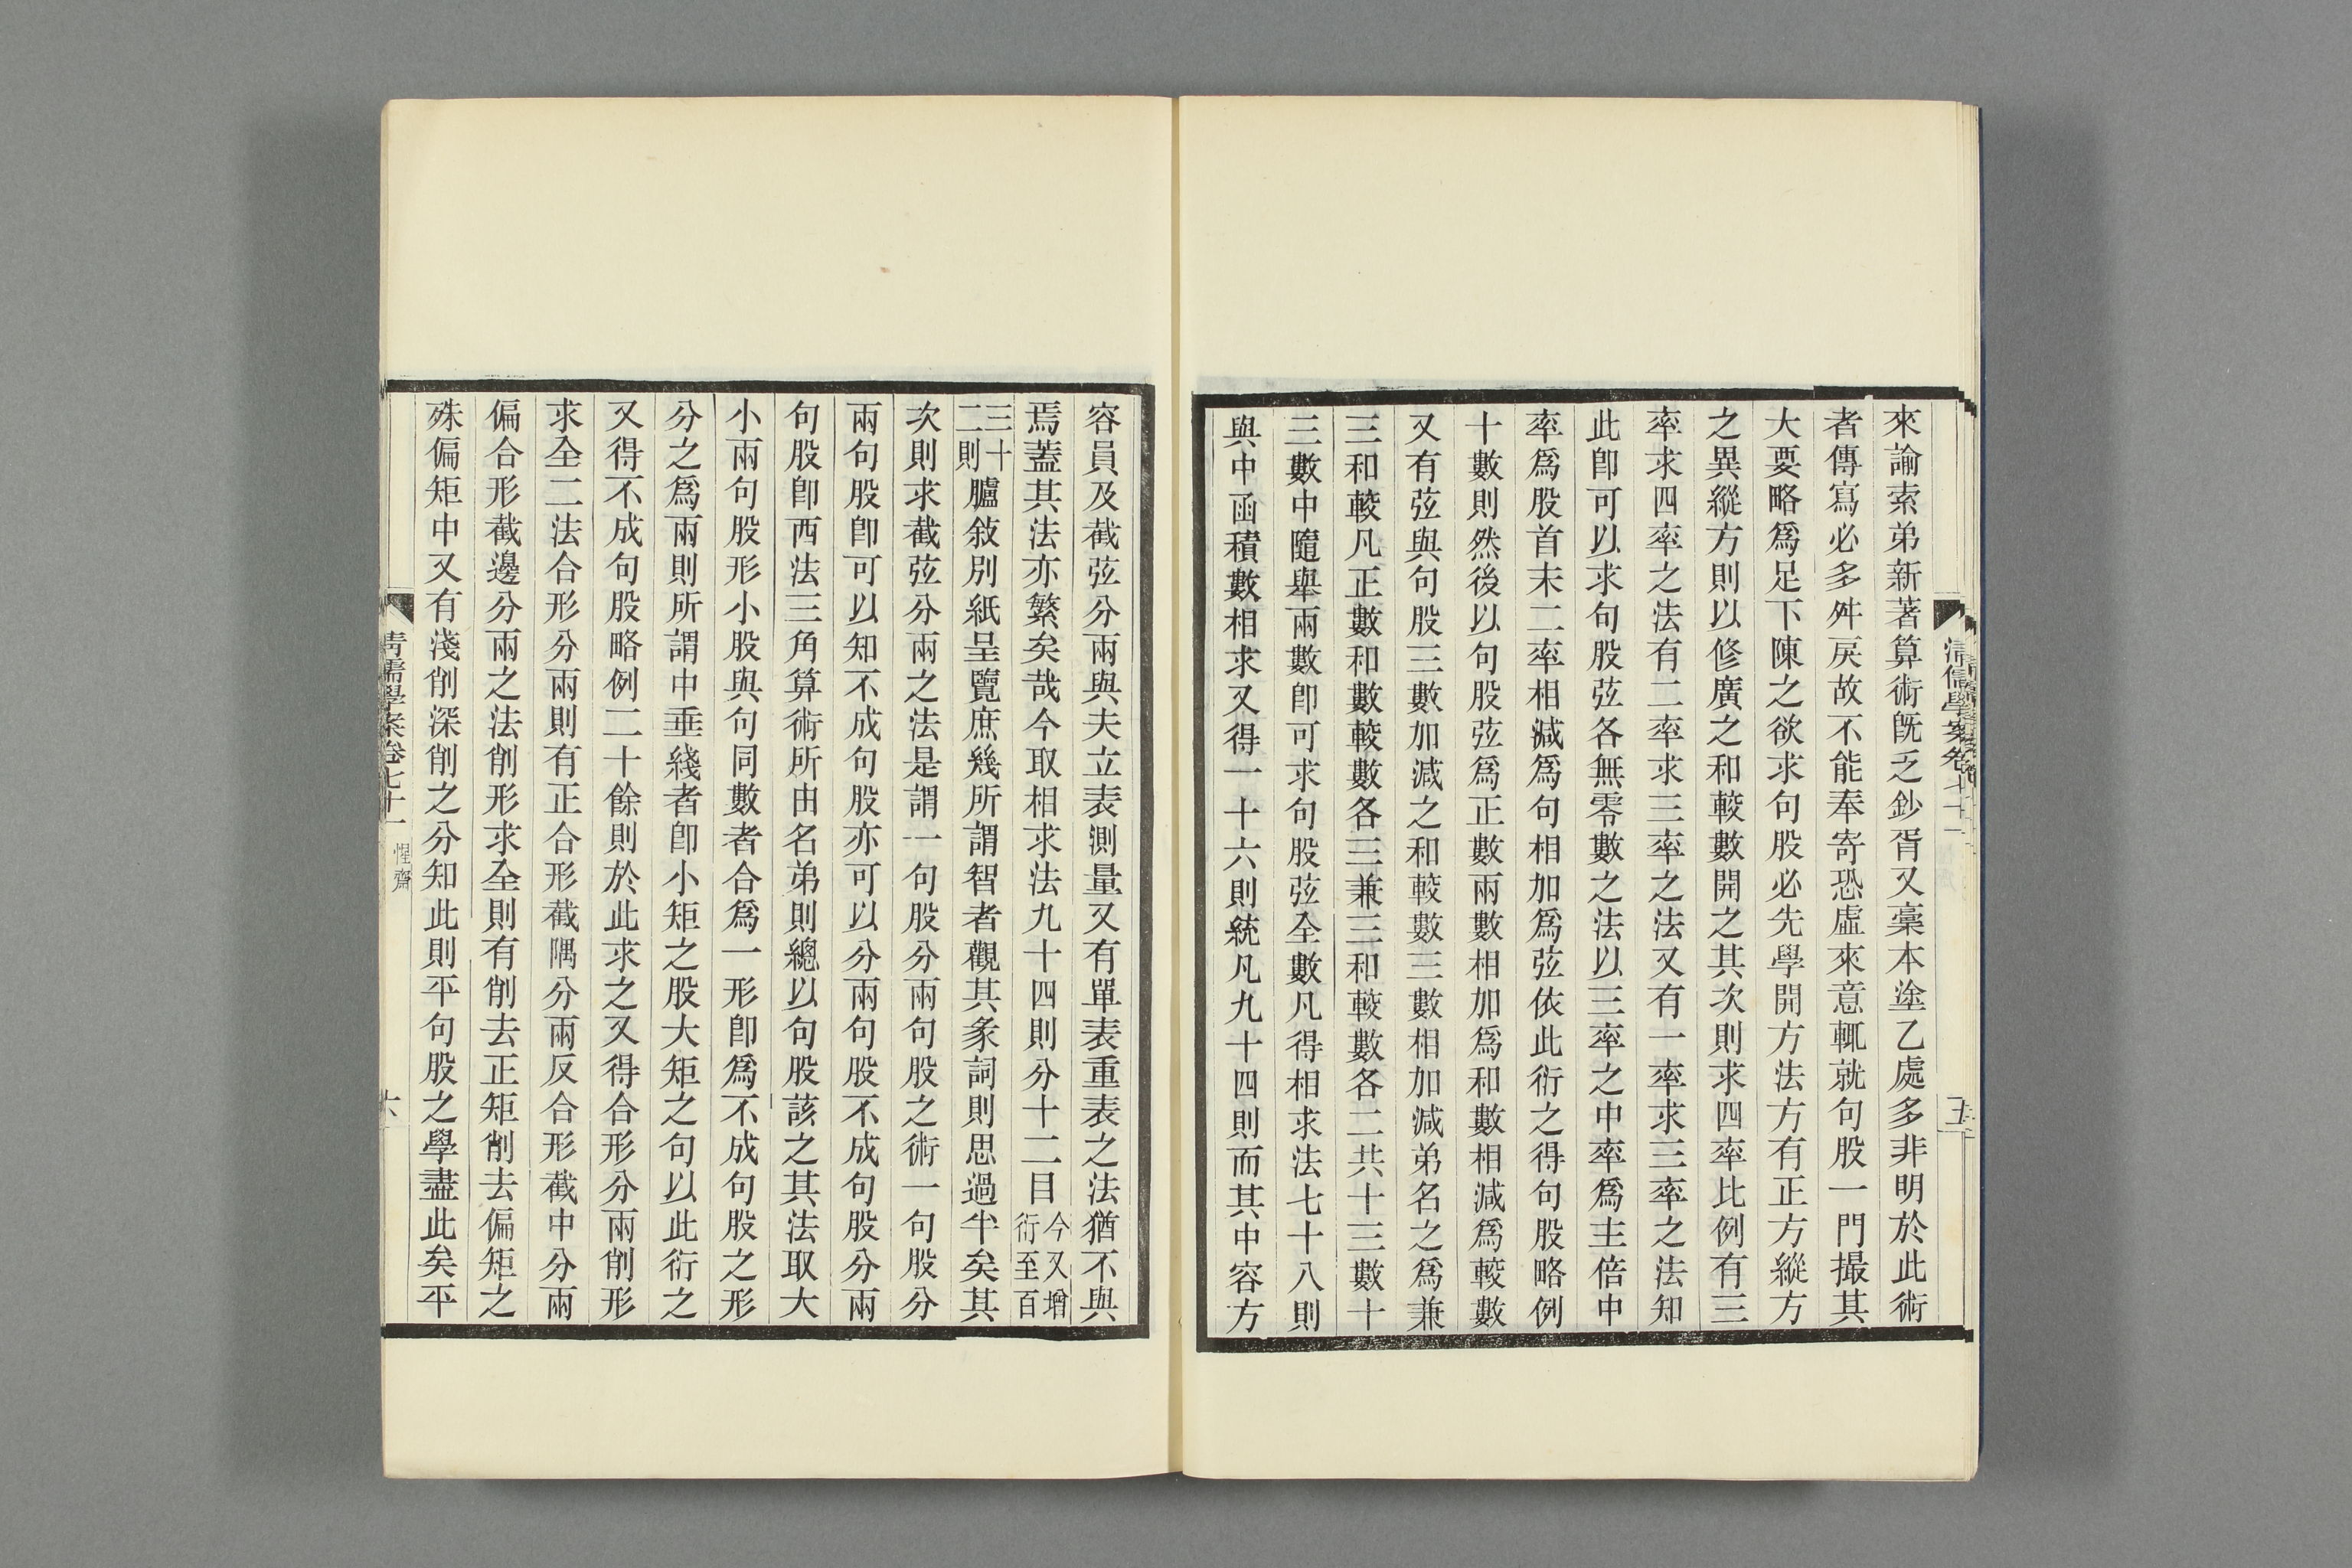 來諭索弟新著算術旣乏鈔胥又稾本塗乙處多非明於此術
者傳寫必多舛戾故不能奉寄恐虛來意輒就句股一門撮其
大要略爲足下陳之欲求句股必先學開方法方有正方縱方
之異縱方則以修廣之和較數開之其次則求四率比例有三
率求四率之法有二率求三率之法又有一率求三率之法知
此卽可以求句股弦各無零數之法以三率之中率爲主倍中
率爲股首末二率相減爲句相加爲弦依此衍之得句股略例
十數則然後以句股弦爲正數兩數相加爲和數相減爲較數
又有弦與句股三數加減之和較數三數相加減弟名之爲兼
三和較凡正數和數較數各三兼三和較數各二共十三數十
三數中隨舉兩數卽可求句股弦全數凡得相求法七十八則
與中函積數相求又得一十六則統凡九十四則而其中容方
容員及截弦分兩與夫立表測量又有單表重表之法猶不與
焉蓋其法亦繁矣哉今取相求法九十四則分十二目今又增衍至百
三十二則臚敘別紙呈覽庶幾所謂智者觀其彖詞則思過半矣其
次則求截弦分兩之法是謂一句股分兩句股之術一句股分
兩句股卽可以知不成句股亦可以分兩句股不成句股分兩
句股卽西法三角算術所由名弟則總以句股該之其法取大
小兩句股形小股與句同數者合爲一形卽爲不成句股之形
分之爲兩則所謂中垂綫者卽小矩之股大矩之句以此衍之
又得不成句股略例二十餘則於此求之又得合形分兩削形
求全二法合形分兩則有正合形截隅分兩反合形截中分兩
偏合形截邊分兩之法削形求全則有削去正矩削去偏矩之
殊偏矩中又有淺削深削之分知此則平句股之學盡此矣平
清儒學案卷七十一
惺齋
六
清儒學案卷七十一
五